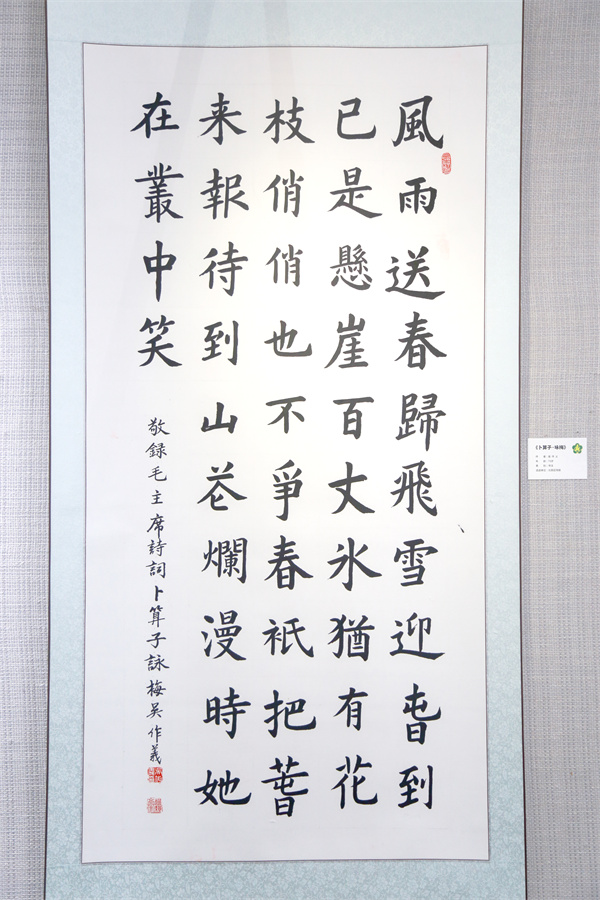 風雨送春歸飛雪迎旾到
已是懸崖百丈氷猶有花
枝俏俏也不爭春衹把萅
来報待到山芲爛漫時她
在叢中笑
敬録毛主席詩詞卜算子詠梅吳作義
《卜算子·咏梅》